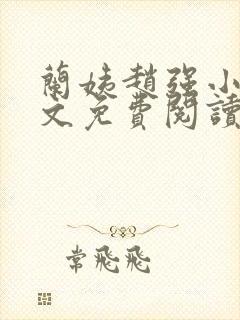 蘭姨趙强小
文免費閱讀
常飛飛